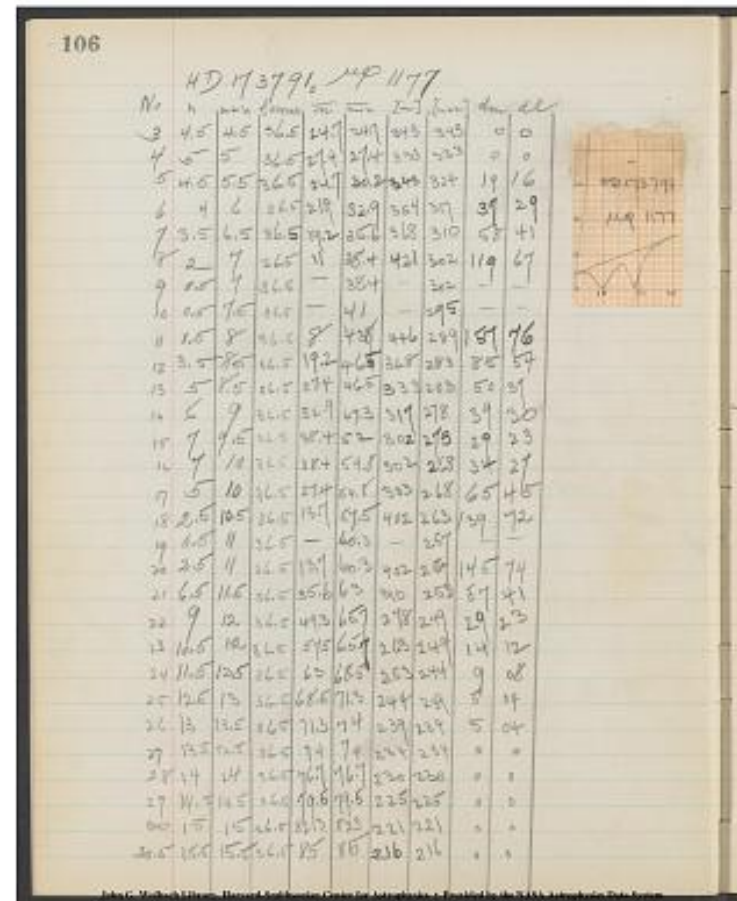 106
HD 173791. μφ 1177
No n max dm dl
3 4.5 4.5 36.5 24.7 24.7 343 343 0 0
4 5 5 36.5 27.4 27.4 333 333 0 0
5 4.5 5.5 36.5 24.7 30.2 343 324 19 16
6 4 6 36.5 21.9 32.9 354 317 37 29
7 3.5 6.5 36.5 19.2 35.6 368 310 58 41
8 2 7 36.5 11 38.4 421 302 119 67
9 0.5 7 36.5 — 38.4 — 302 — —
10 0.5 7.5 36.5 — 41 — 295 — —
11 1.5 8 36.5 8 43.8 446 289 157 76
12 3.5 8.5 36.5 19.2 46.5 368 283 85 54
13 5 8.5 36.5 27.4 46.5 333 283 50 37
14 6 9 36.5 32.9 49.3 317 278 39 30
15 7 9.5 36.5 38.4 52 302 273 29 23
16 7 10 36.5 38.4 54.8 302 268 34 27
17 5 10 36.5 27.4 54.8 333 268 65 45
18 2.5 10.5 36.5 13.7 57.5 402 263 139 72
19 0.5 11 36.5 — 60.3 — 257 — —
20 2.5 11 36.5 13.7 60.3 402 257 145 74
21 6.5 11.5 36.5 35.6 63 310 253 57 41
22 9 12 36.5 49.3 65.7 278 249 29 23
23 10.5 12 36.5 57.5 65.7 263 249 14 12
24 11.5 12.5 36.5 63 68.5 253 244 9 08
25 12.5 13 36.5 68.5 71.3 244 239 5 04
26 13 13.5 36.5 71.3 74 239 234 5 04
27 13.5 13.5 36.5 74 74 234 234 0 0
28 14 14 36.5 76.7 76.7 230 230 0 0
29 14.5 14.5 36.5 79.5 79.5 225 225 0 0
30 15 15 36.5 82.3 82.3 221 221 0 0
30.5 15.5 15.5 36.5 85 85 216 216 0 0
HD 173791
μφ 1177
John G. Wolbach Library, Harvard-Smithsonian Center for Astrophysics • Provided by the NASA Astrophysics Data System